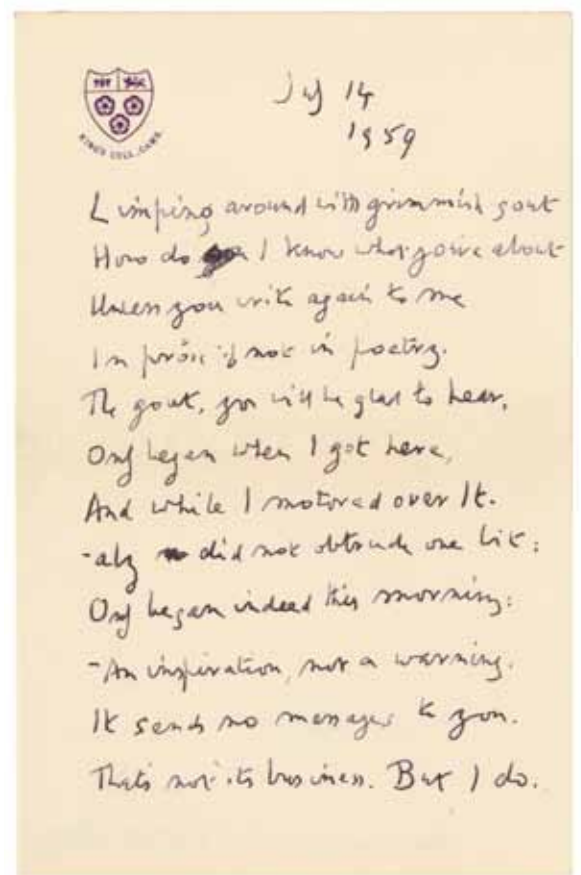 KING'S COLL., CAMB.
July 14
1959
Limping around with grimmish gout
How do I know what you're about
Unless you write again to me
In prose if not in poetry.
The gout, you will be glad to hear,
Only began when I got here,
And while I motored over It.
-aly did not obtrude one bit:
Only began indeed this morning:
-An inspiration, not a warning.
It sends no messages to you.
That's not its business. But I do.